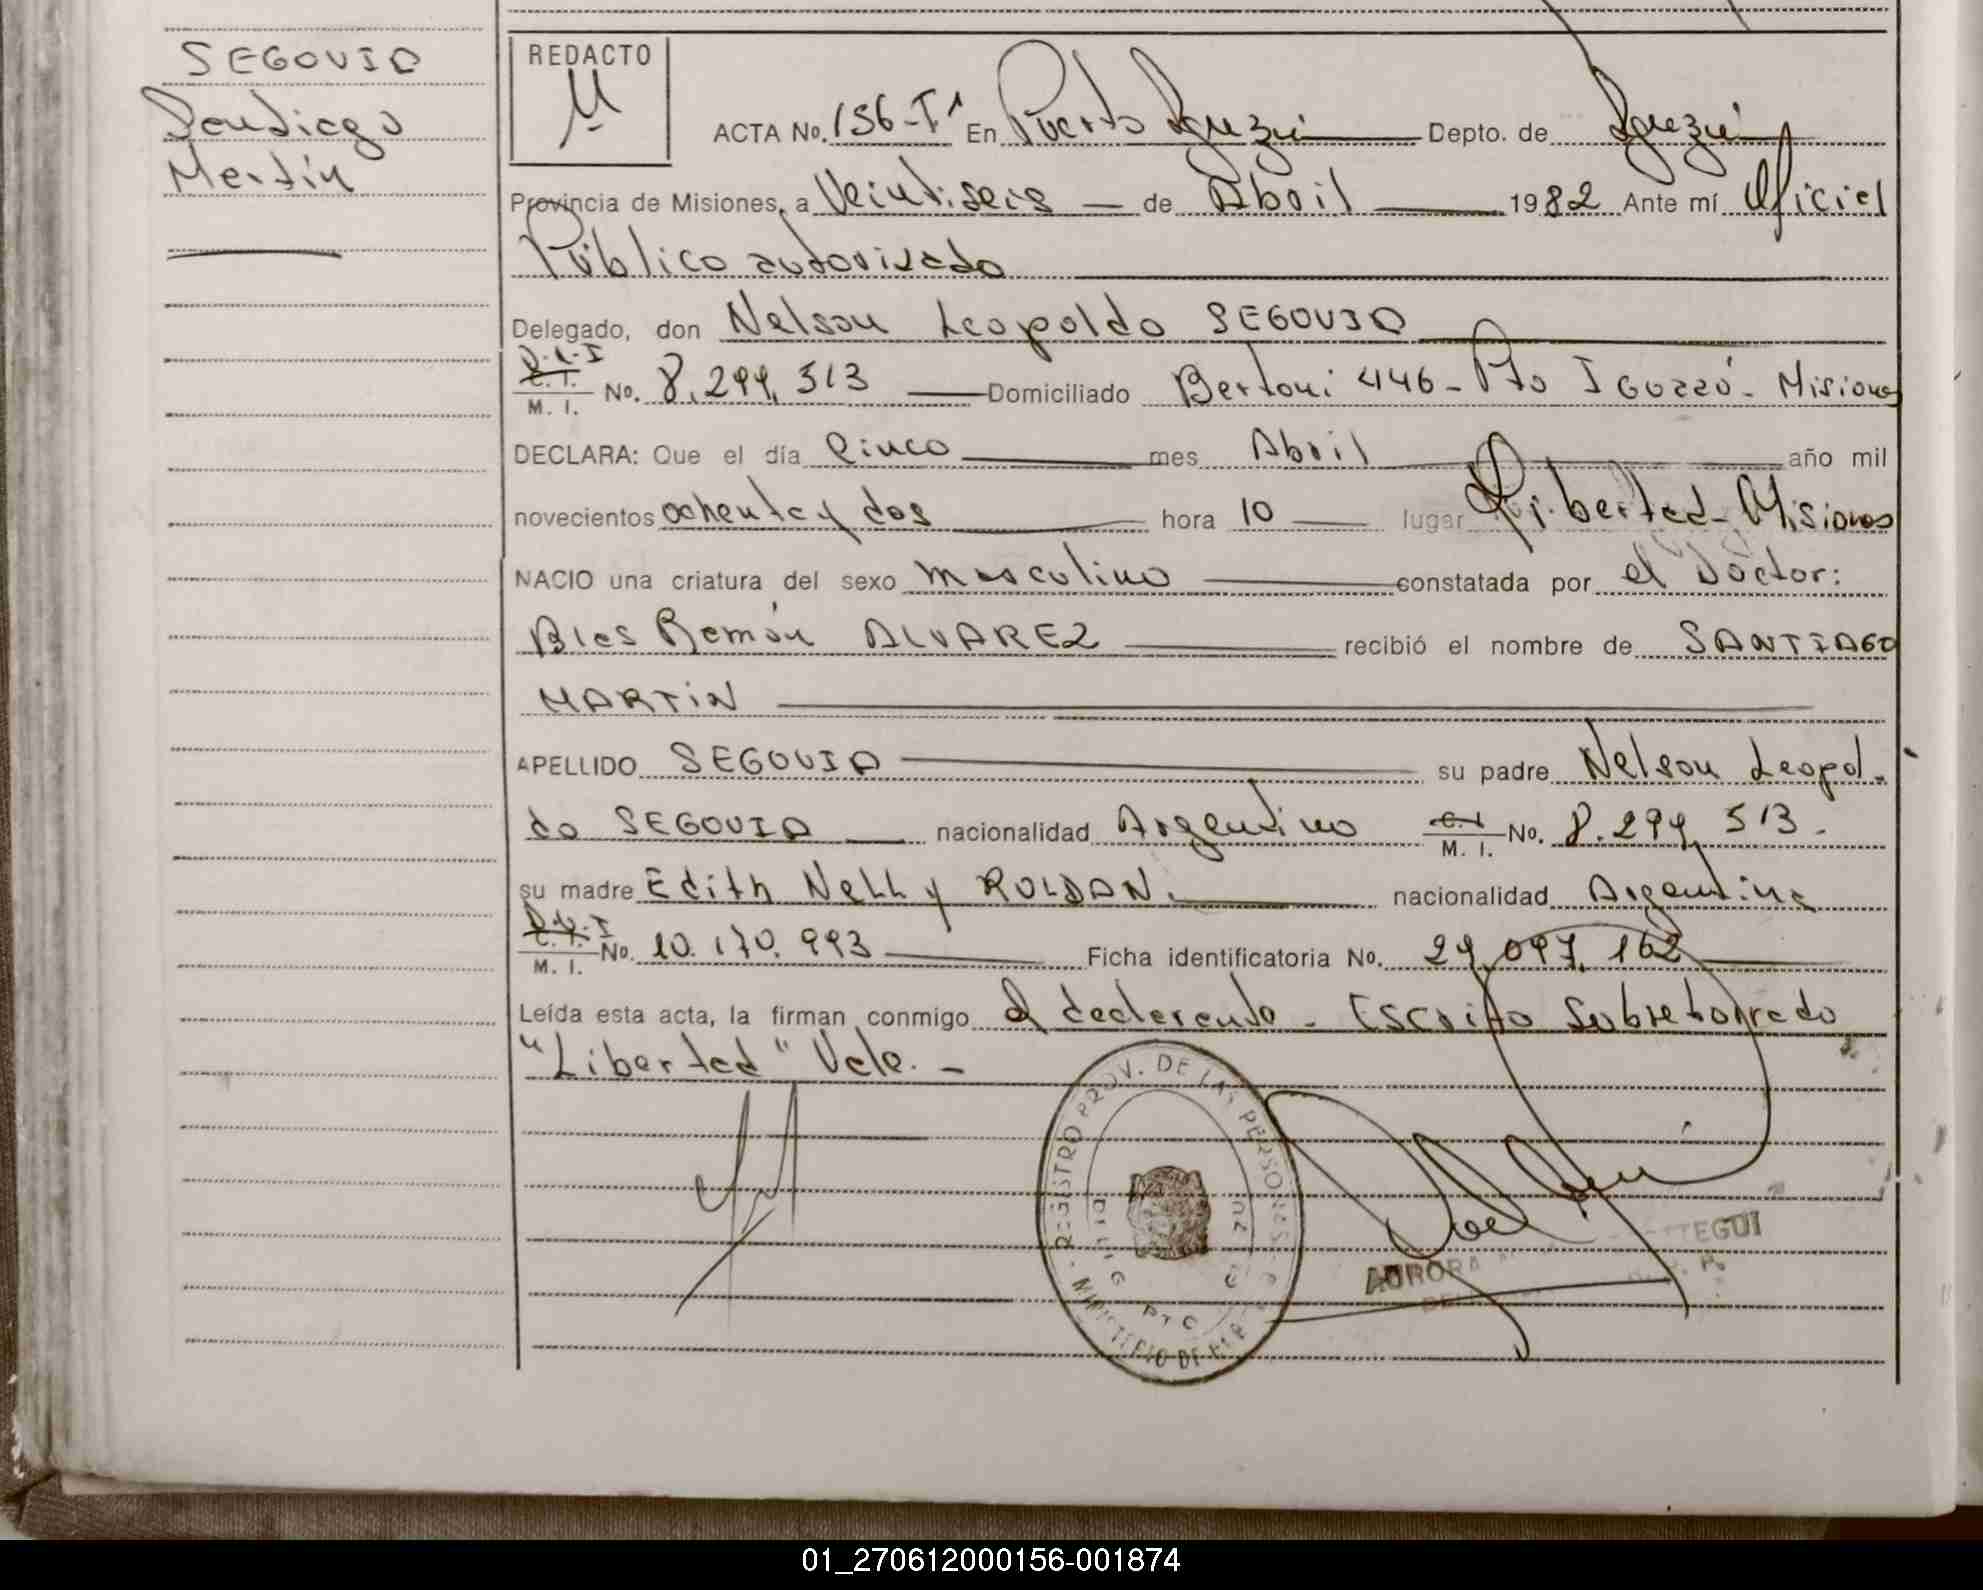 SEGOVIA
Santiago
Martín
REDACTO
ACTA No. 156-Iª En Puerto Iguazú Depto. de Iguazú
Provincia de Misiones, a Veintiseis de Abril 1982 Ante mí Oficial
Público autorizado
Delegado, don Nelson Leopoldo SEGOVIA
D.N.I
C. I.
M. I. No. 8.299.513 Domiciliado Bertoni 446- Pto Iguazú- Misiones
DECLARA: Que el día Cinco mes Abril año mil
novecientos ochenta y dos hora 10 lugar Libertad- Misiones
NACIO una criatura del sexo masculino constatada por el Doctor:
Blas Ramón ALVAREZ recibió el nombre de SANTIAGO
MARTÍN
APELLIDO SEGOVIA su padre Nelson Leopol-
do SEGOVIA nacionalidad Argentino C. I. M. I. No. 8.299.513.-
su madre Edith Nelly ROLDAN. nacionalidad Argentina
D.N.I
C. I.
M. I. No. 10.170.993 Ficha identificatoria No. 29.097.162
Leída esta acta, la firman conmigo el declarante - Escrito Sobreborrado
"Libertad" Vale.-
REGISTRO PROV. DE LAS PERSONAS
MINISTERIO DE
PTO
AURORA
TEGUI
01_270612000156-001874